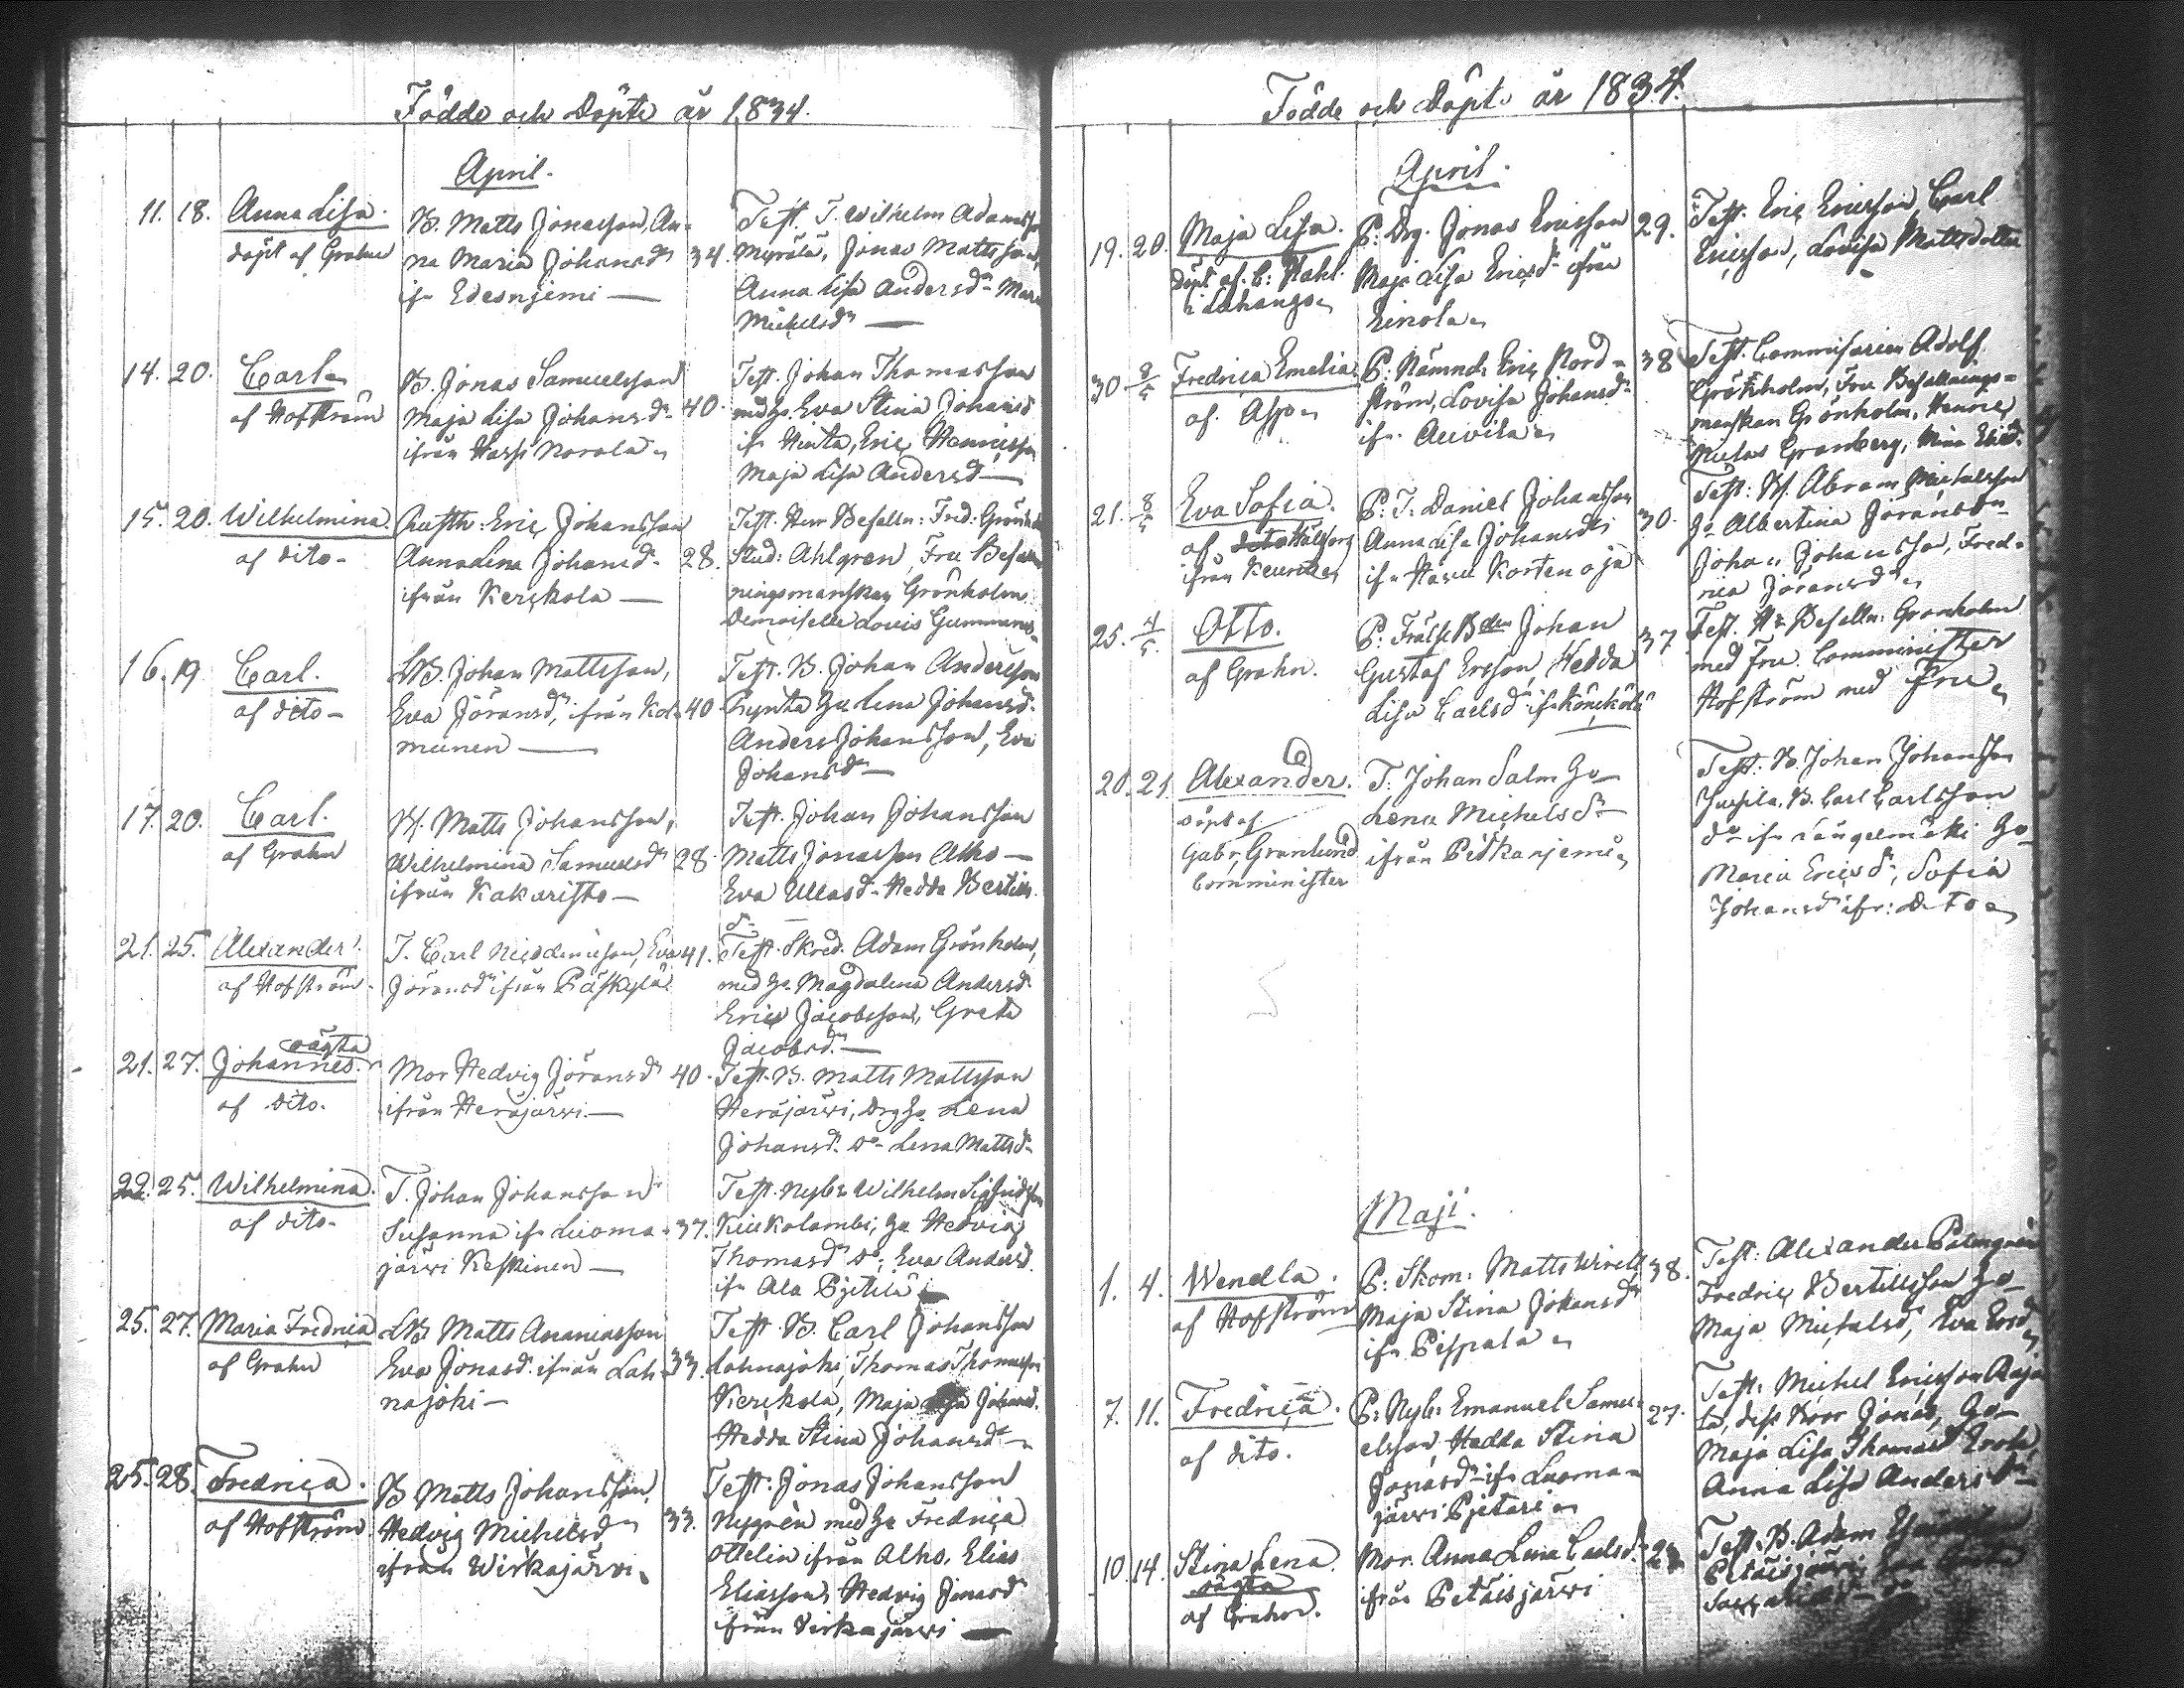 Födde och Döpte år 1834.
April.
11. 18. Anna Lisa.
döpt af Grahn
B. Matts Jonasson, An-
na Maria Johansdr 34.
ifr Edesnjemi —
Test. T. Wilhelm Adamsson
Myrälä, Jonas Mattsson,
Anna Lisa Andersdr Maria
Michelsdr —
14. 20. Carl
af Hofström
B. Jonas Samuelsson
Maja Lisa Johansdr 40.
ifrån Harsi Norola
Test. Johan Thomasson
med hu Eva Stina Johansd
ifr Hinta, Eric Henricsson
Maja Lisa Andersd —
15. 20. Wilhelmina.
af dito -
Eric Johansson
Anna Lena Johansd 28.
ifrån Kerckola —
Test. Herr Befalln: Fred: Grönholm
Stud: Ahlgren, Fru Befall
ningsmanskan Grönholm
Demoiselle Lovis Gummerus
16. 19 Carl.
af dito -
LB. Johan Mattsson,
Eva Jöransdr, ifrån Kol- 40.
munen —
Test. B. Johan Andersson
hu Lena Johansd.
Anders Johansson, Eva
Johansdr —
17. 20. Carl.
af Grahn
B. Matts Johansson,
Wilhelmina Samuelsd 28.
ifrån Kakaristo —
Test. Johan Johansson
Matts Jonasson Alho —
Eva Ullasd. Hedda Bertils
d. —
21. 25. Alexander.
af Hofström.
T. Carl Nicodemusson, Eva 41.
Jöransd ifrån Päskylä
Test. Skred. Adam Grönholm,
med hu Magdalena Andersd
Eric Jacobsson, Greta
Jacobsd. —
21. 27. Johannes. oägta
af dito.
Mor Hedvig Jöransd 40.
ifrån Heräjärvi —
Test. B. Matts Mattsson
Heräjärvi, Drg hu Lena
Johansd. do Lena Mattsd.
22. 25. Wilhelmina.
af dito.
T. Johan Johansson
Susanna ifr Luoma- 37.
järvi Keskinen —
Test. Nyb: Wilhelm Sigfridsson
Kuckolambi, hu Hedvig
Thomasdr do, Eva Andersd
ifr Ala Pjetilä
25. 27. Maria Fredrica
af Grahn
LB Matts Ananiasson
Eva Jonasd. ifrån Lah- 33.
najoki —
Test. B. Carl Johansson
Lahnajoki, Thomas Thomasson
Kerckola, Maja Lisa Johansd.
Hedda Stina Johansd —
25. 28. Fredrica.
af Hofström.
B Matts Johansson,
Hedvig Michelsdr 33.
ifrån Wirkajärvi.
Test: Jonas Johansson
Nygrèn med hu Fredrica
Ottelin ifrån Alho, Elias
Eliasson, Hedvig Jonasd
ifrån Virkajärvi —
Födde och Döpte år 1834.
April.
19. 20. Maja Lisa.
döpt af C: Stahl
i Lahanges
P: Drg. Jonas Ericsson 29.
Maja Lisa Ericsdr ifrån
Einola
Test. Eric Ericsson, Carl
Ericsson, Lovisa Mattsdotter
30 8/5 Fredrica Emelia.
af. Asp
P: Nämnd: Eric Nord- 38
ström, Lovisa Johansdr
ifr. Auvila
Test. Commisarien Adolf
Grönholm, Fru Befallnings-
manskan Grönholm, Henric
Niclas Granberg, Mina Ericsd.
21. 8/5 Eva Sofia.
af dito Hällfors
ifrån Keuru
P: T. Daniel Johansson
Anna Lisa Johansdr 30.
ifr Harru Kortenoja
Test: B. Abram Michelsson
hu Albertina Jöransdr
Johan Johansson, Fred-
rica Jöransdr
25. 4/5. Otto.
af Grahn.
P: Frälse Bden Johan 37
Gustaf Ersson, Hedda
Lisa Carlsd ifr Könckölä
Test. Hr Befalln. Grönholm
med Fru. Comminister
Hofström med Fru
20. 21. Alexander.
döpt af
Gabr. Granlund
Comminister
T. Johan Salm hu
Lena Michelsdr
ifrån Pitkänjemi
Test: B. Johan Johansson
Jussila, B. Carl Carlsson
do ifr Längelmäki hu
Maria Ericsd, Sofia
Johansd ifr: dito
Maji.
1. 4. Wendla.
af Hofström
P: Skom: Matts Wirell 38.
Maja Stina Johansdr
ifr Pispala
Test: Alexander Palmgrèn
Fredric Bertillsson hu
Maja Michelsd, Eva Ersd
7. 11. Fredrica.
af dito.
P: Nyb: Emanuel Samu- 27.
elsson, Hedda Stina
Jonasdr ifr Luoma-
järvi Pjetari
Test: Michel Ericsson Raja
la, dess Bror Jonas, hu
Maja Lisa Thomasd Erola,
Anna Lisa Andersdr
10. 14. Stina Lena.
oägta
af Grahn.
Mor. Anna Lena Carlsd.
ifrån Petäisjärvi
Test: B. Adam
Petäisjärvi, Eva